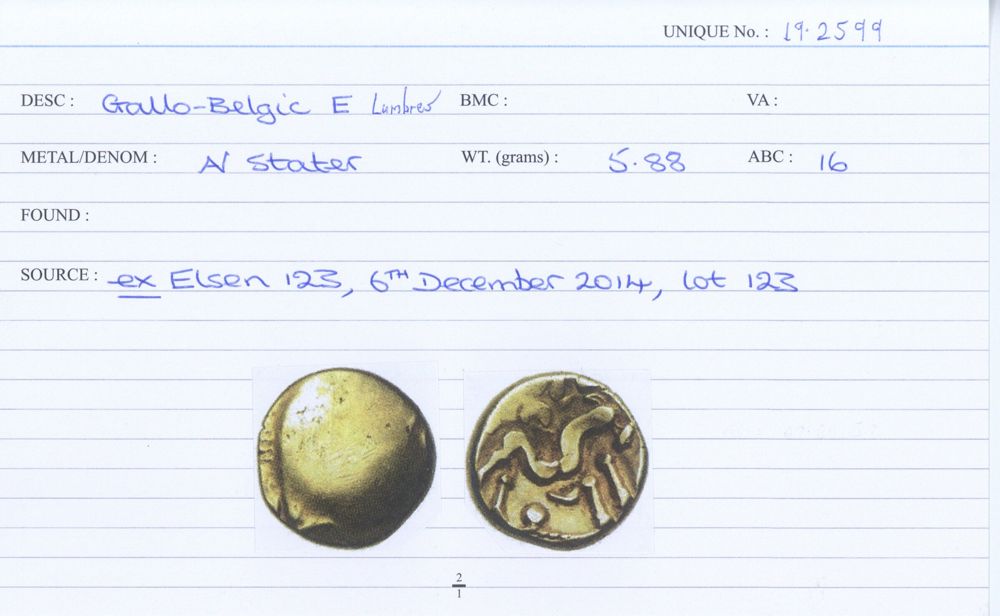 UNIQUE No. : 19.2599
DESC : Gallo-Belgic E Lumbres BMC : VA :
METAL/DENOM : AV Stater WT. (grams) : 5.88 ABC : 16
FOUND :
SOURCE : ex Elsen 123, 6TH December 2014, lot 123
2
1